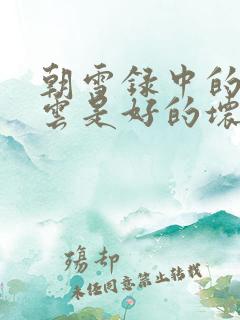 朝雪録中的
雲是好的壞
殤却
未任同意禁止转载